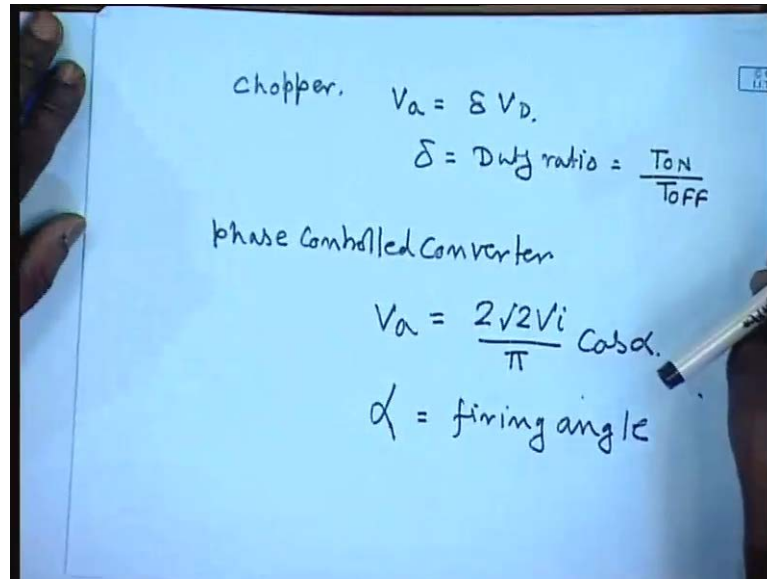 Chopper. Va = δ VD.
δ = Duty ratio = TON / TOFF
phase Controlled Converter
Va = 2√2Vi / π Cosα.
α = firing angle